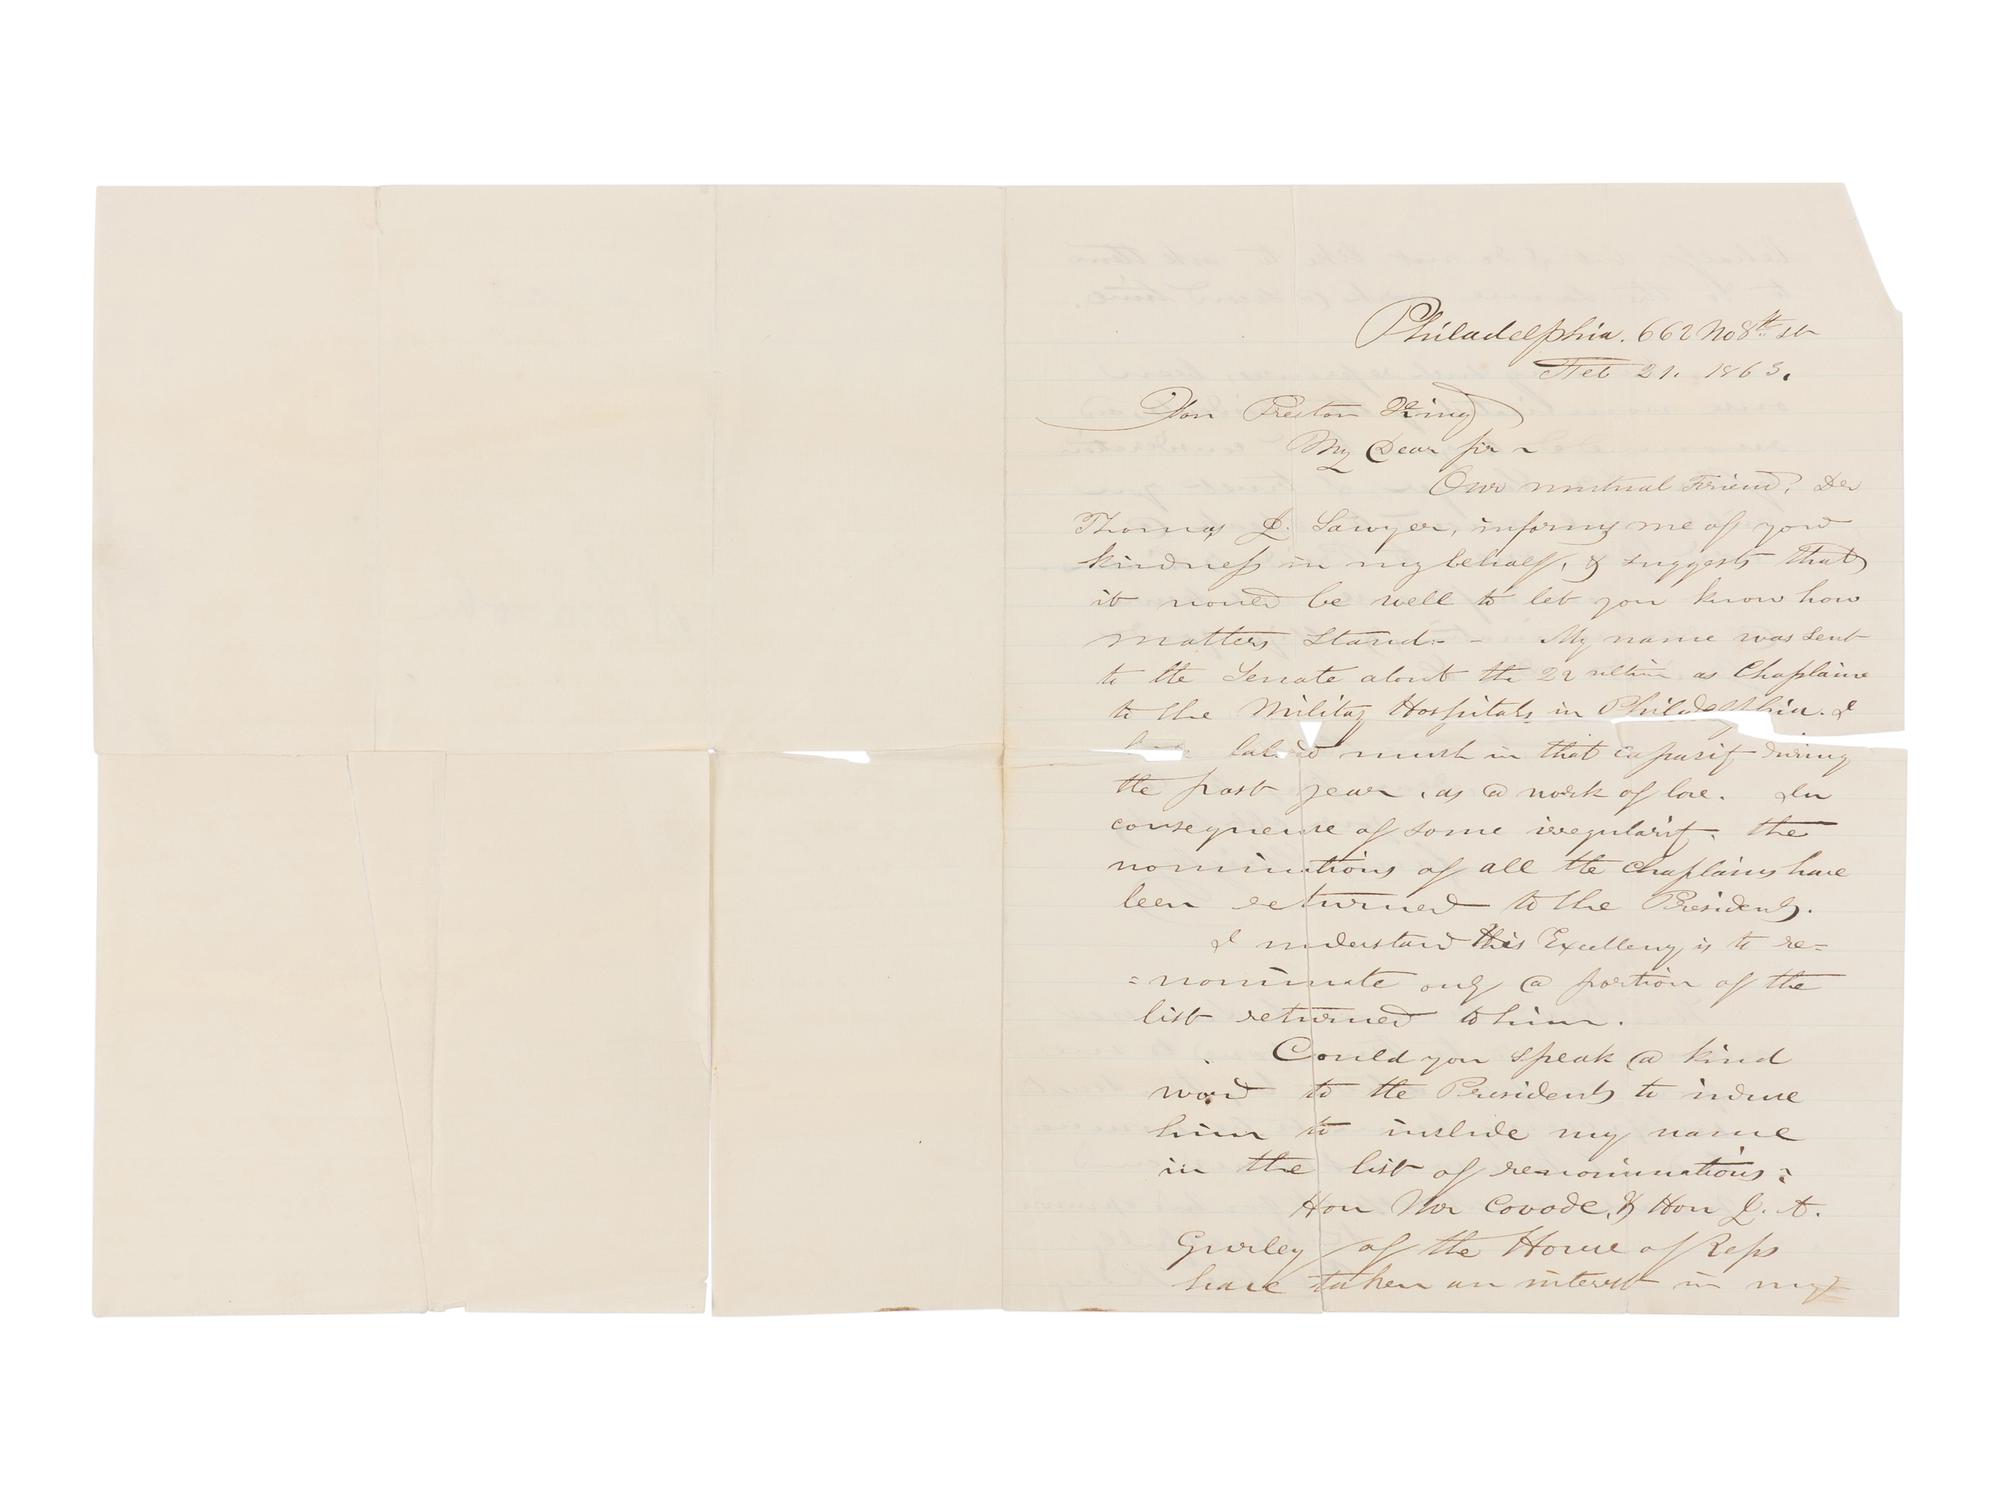 Philadelphia. 662 No 8th st
Feb 21. 1863.
Hon Preston King
My Dear Sir ~
Our mutual Friend, Dr
Thomas J. Sawyer, informs me of your
kindness in my behalf, & suggests that
it would be well to let you know how
matters stand:- - My name was sent
to the Senate about the 22 ultim as Chaplain
to the Military Hospitals in Philadelphia. I
labored much in that capacity during
the past year, as a work of love. In
consequence of some irregularity, the
nominations of all the chaplains have
been returned to the President.
I understand His Excellency is to re=
=nominate only a portion of the
list returned to him.
Could you speak a kind
word to the President to induce
him to include my name
in the list of renominations?
Hon Mr Covode, & Hon J. A.
Gurley of the House of Reps
have taken an interest in my